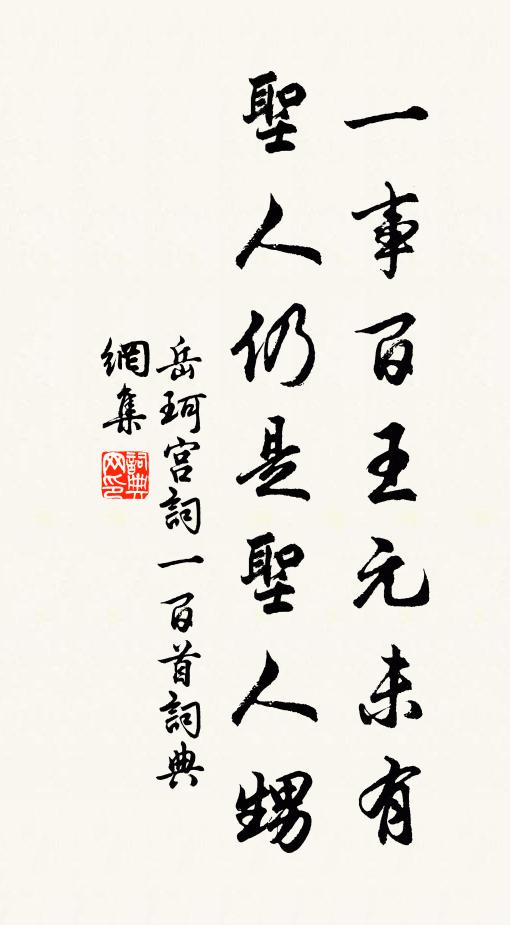 一事百王元未有
聖人仍是聖人甥
岳珂宮詞一百首詞典
網集
詞典網印